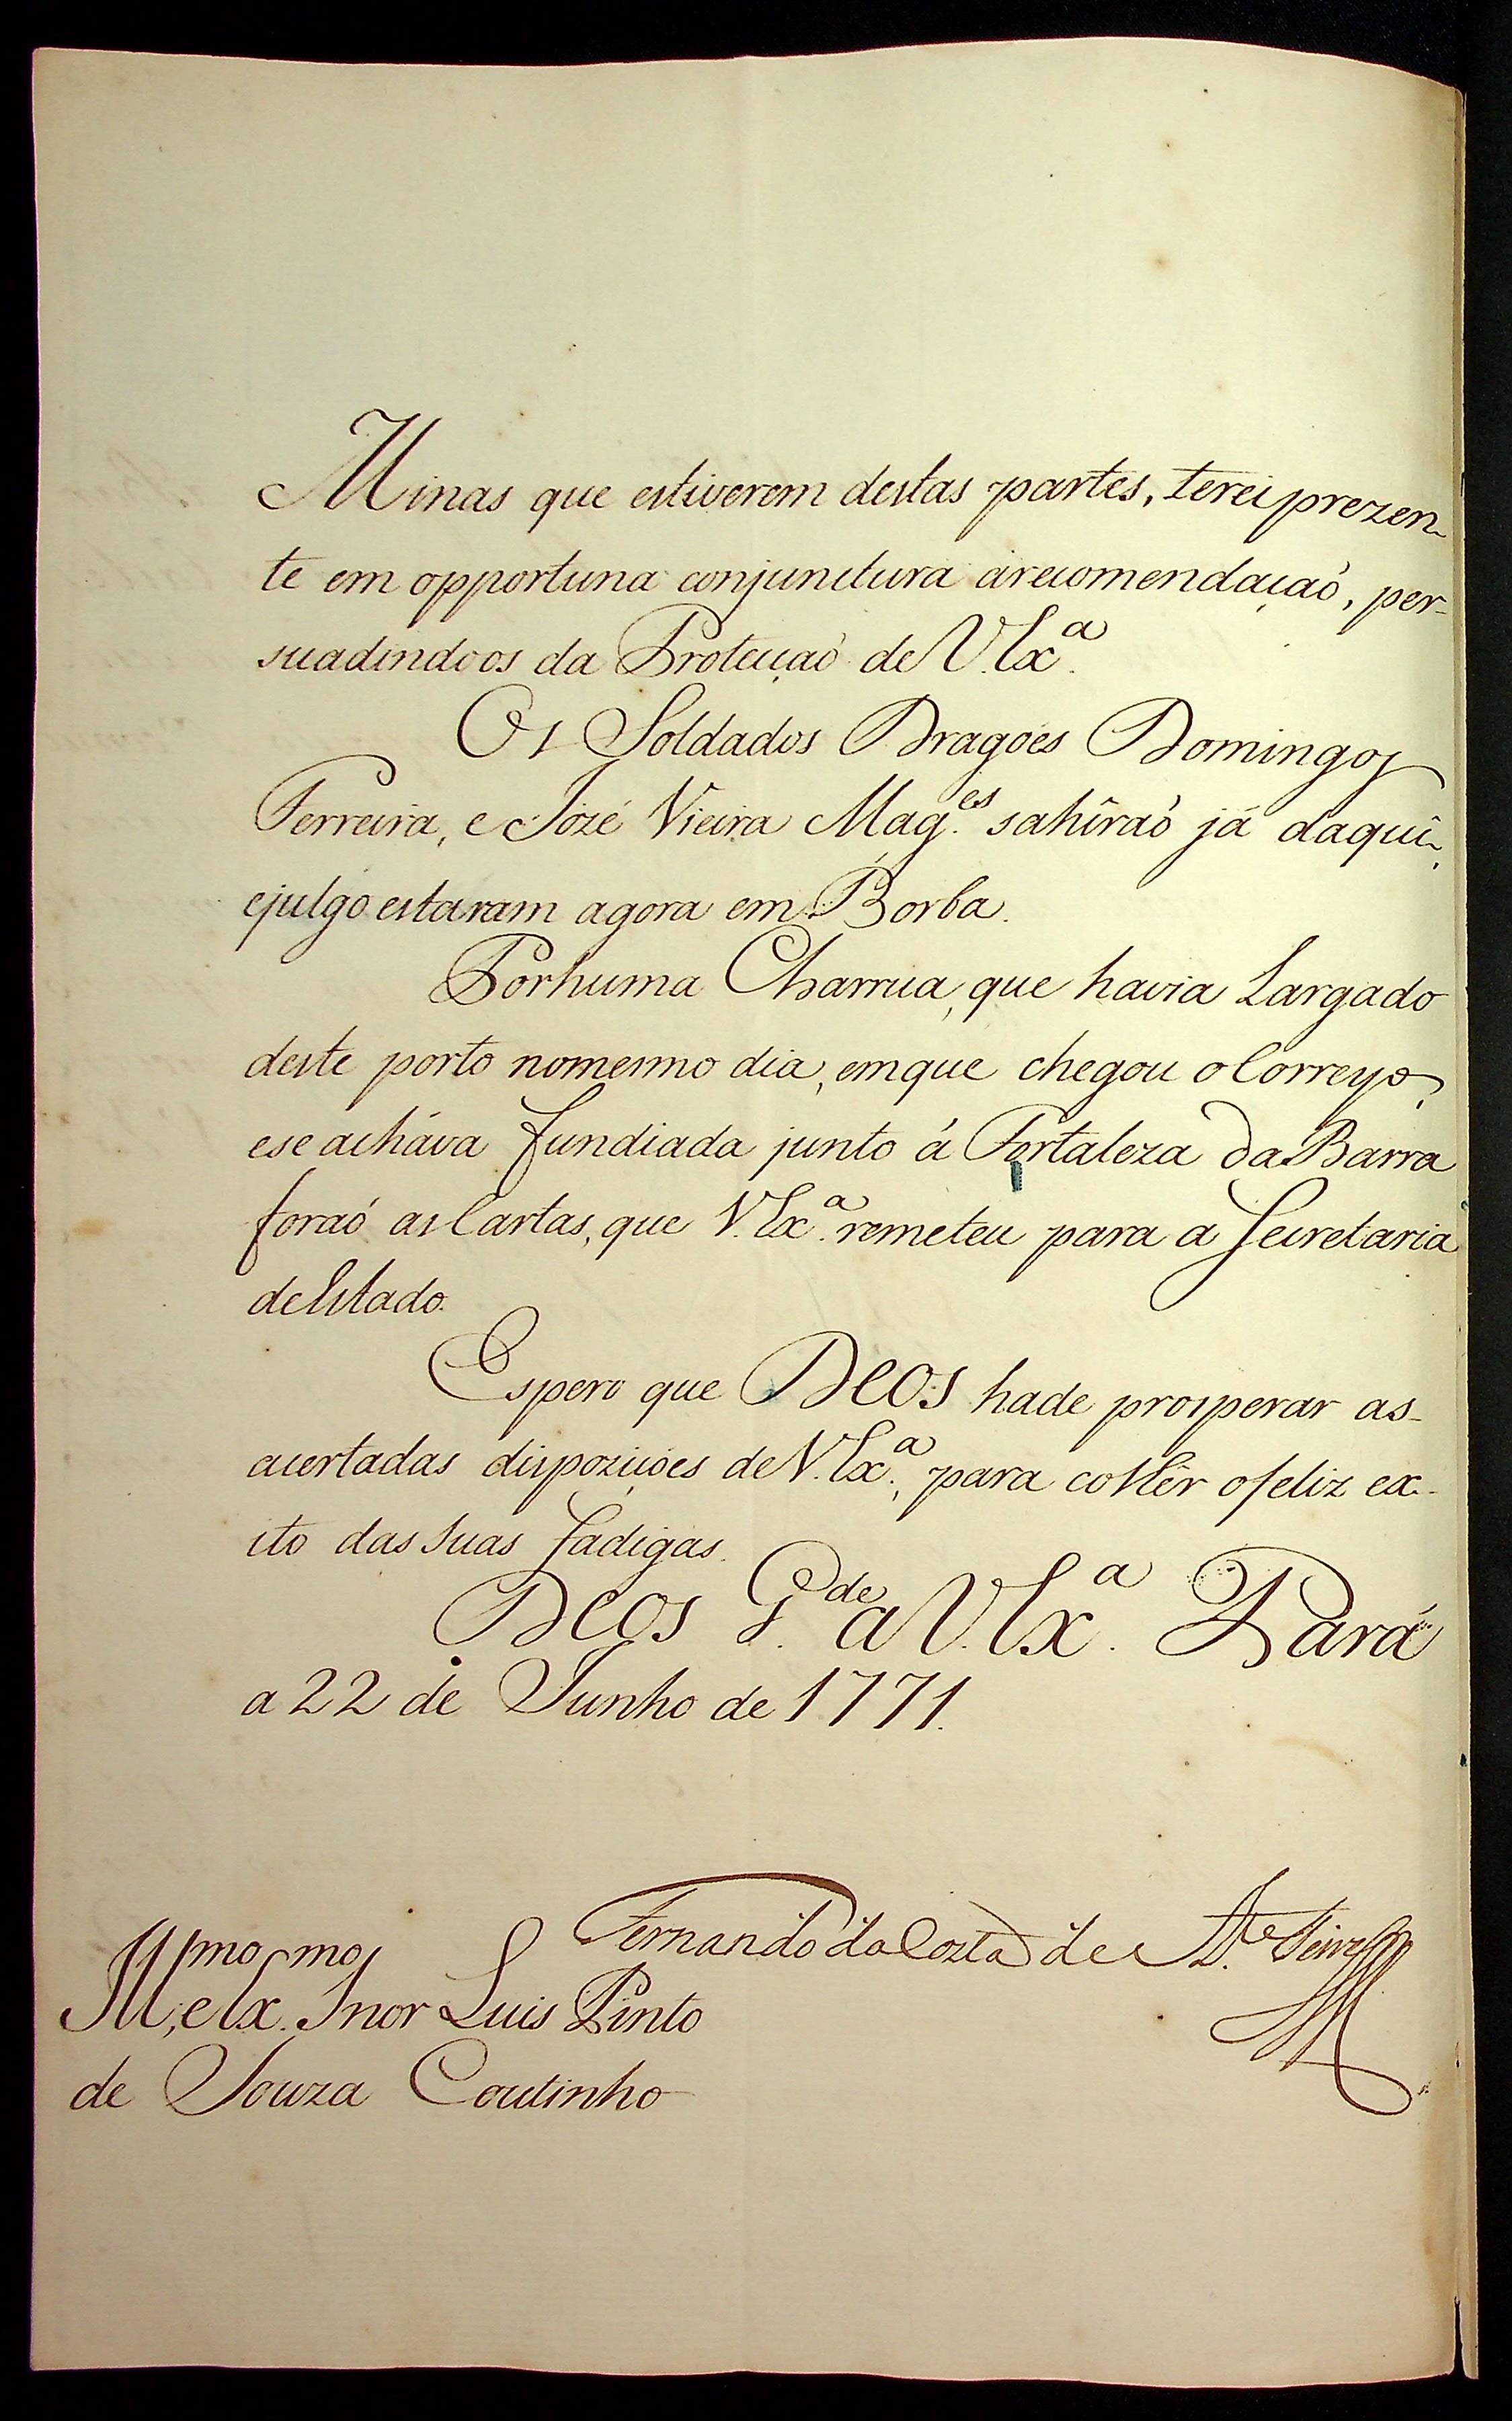 Minas que estiverem destas partes, terei prezen-
te em opportuna conjunctura arecomendaçaõ, per-
suadindoos da Protecçaõ de V. Exª.
Os Soldados Dragoẽs Domingos
Ferreira, e Jozé Vieira Mag.es sahîraõ já daquî,
ejulgo estaram agora em Borba.
Porhuma Charrua, que havia Largado
deste porto nomesmo dia, emque chegou oCorreyo,
ese acháva fundiada junto á Fortaleza da Barra
foraõ asCartas, que V. Exª. remeteu para a Secretaria
deEstado.
Espero que DEOS hade prosperar as
acertadas dispoziçoẽs de V. Exª., para colhêr ofeliz ex-
ito das suas fadigas.
DEOS G.de a V. Exª. Pará
a 22 de Junho de 1771.
Fernando da Costa de At.e Teive
Ill.mo, e Ex.mo Snor Luis Pinto
de Souza Coutinho